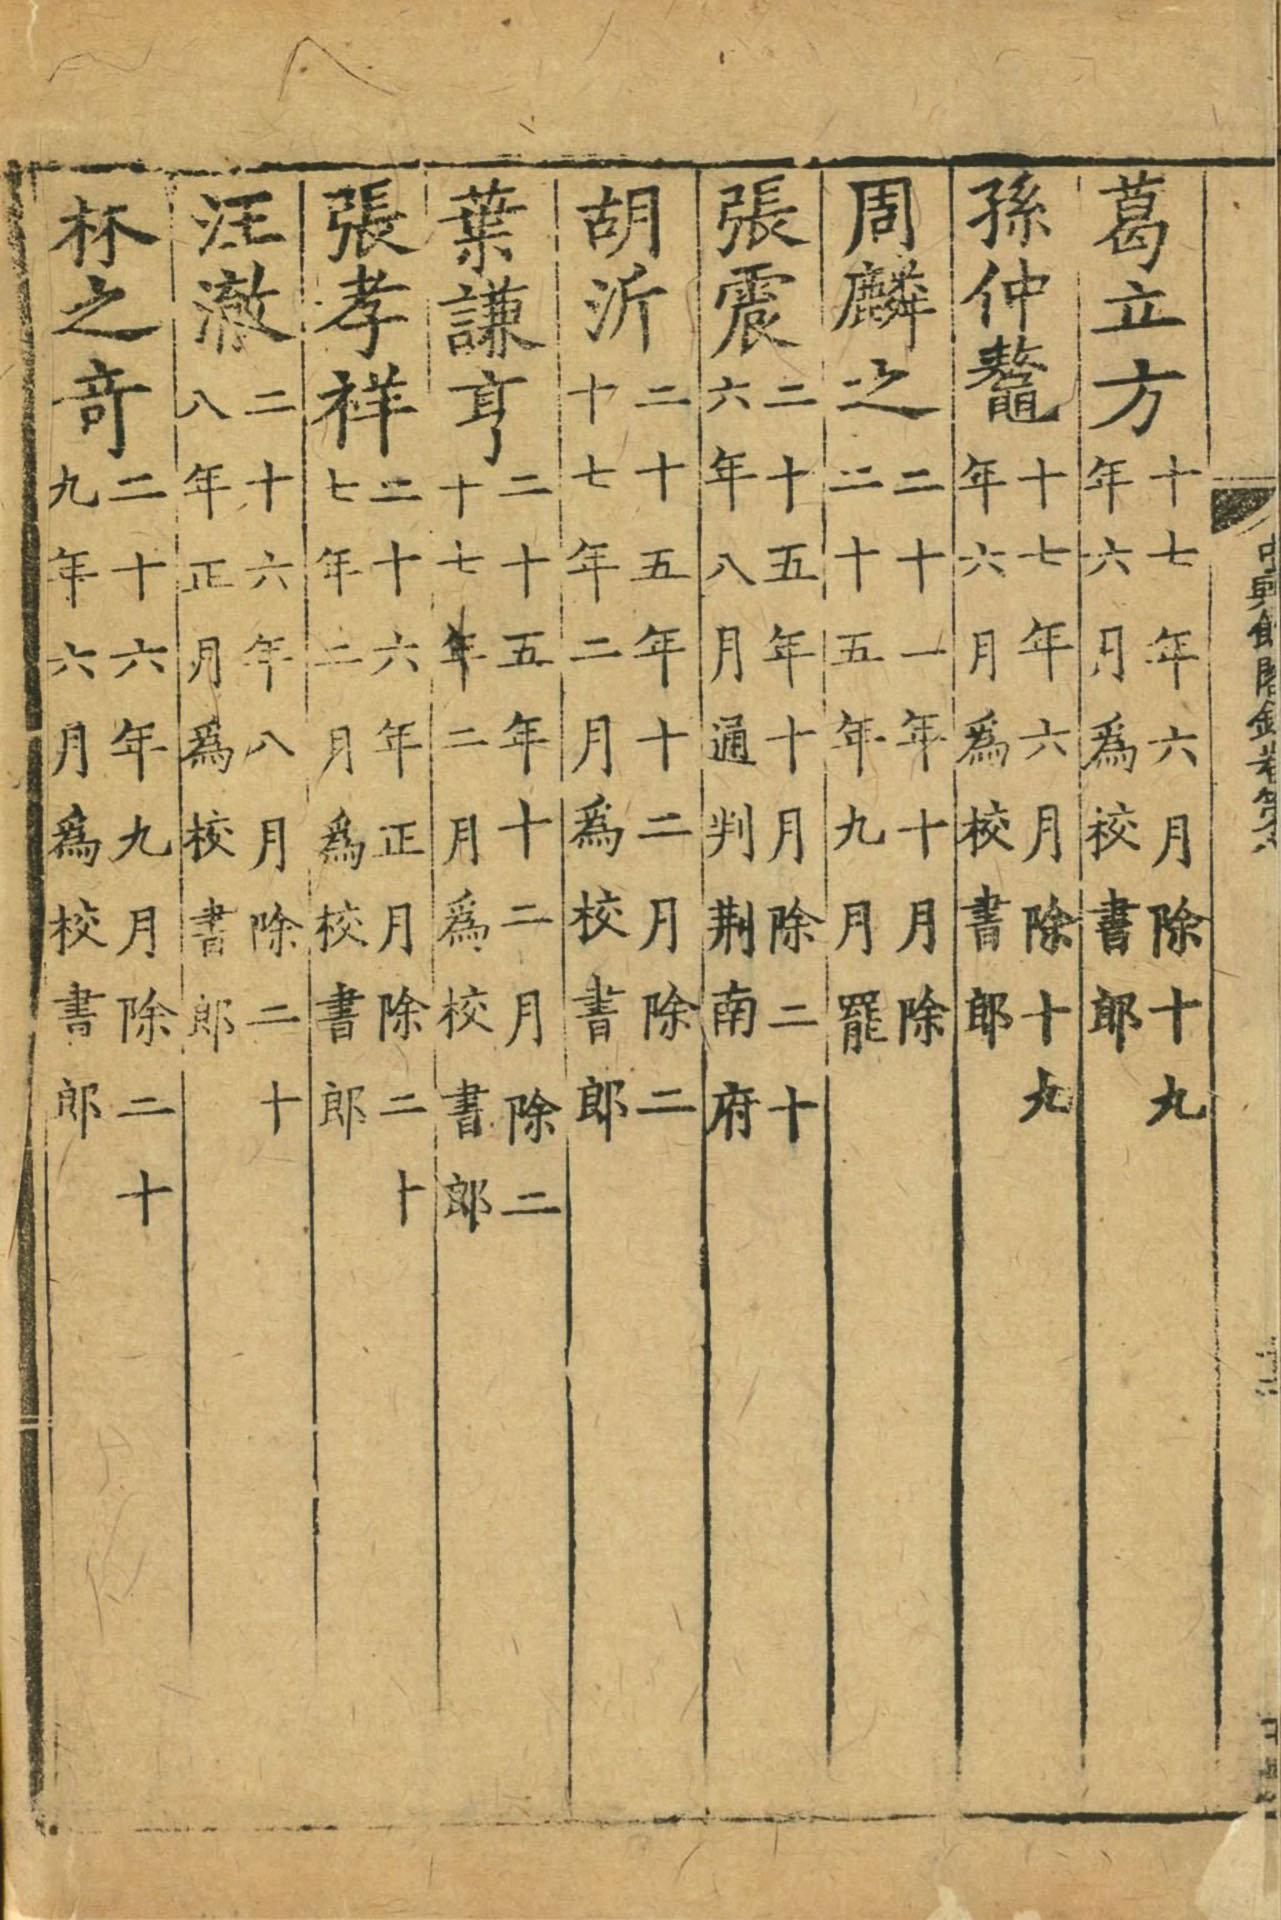 葛立方十七年六月除十九年六月爲校書郎
孫仲鼇十七年六月除十九年六月爲校書郎
周麟之二十一年十月除二十五年九月罷
張震二十五年十月除二十六年八月通判荆南府
胡沂二十五年十二月除二十七年二月爲校書郎
葉謙亨二十五年十二月除二十七年二月爲校書郎
張孝祥二十六年正月除二十七年二月爲校書郎
汪澈二十六年八月除二十八年正月爲校書郎
林之竒二十六年九月除二十九年六月爲校書郎